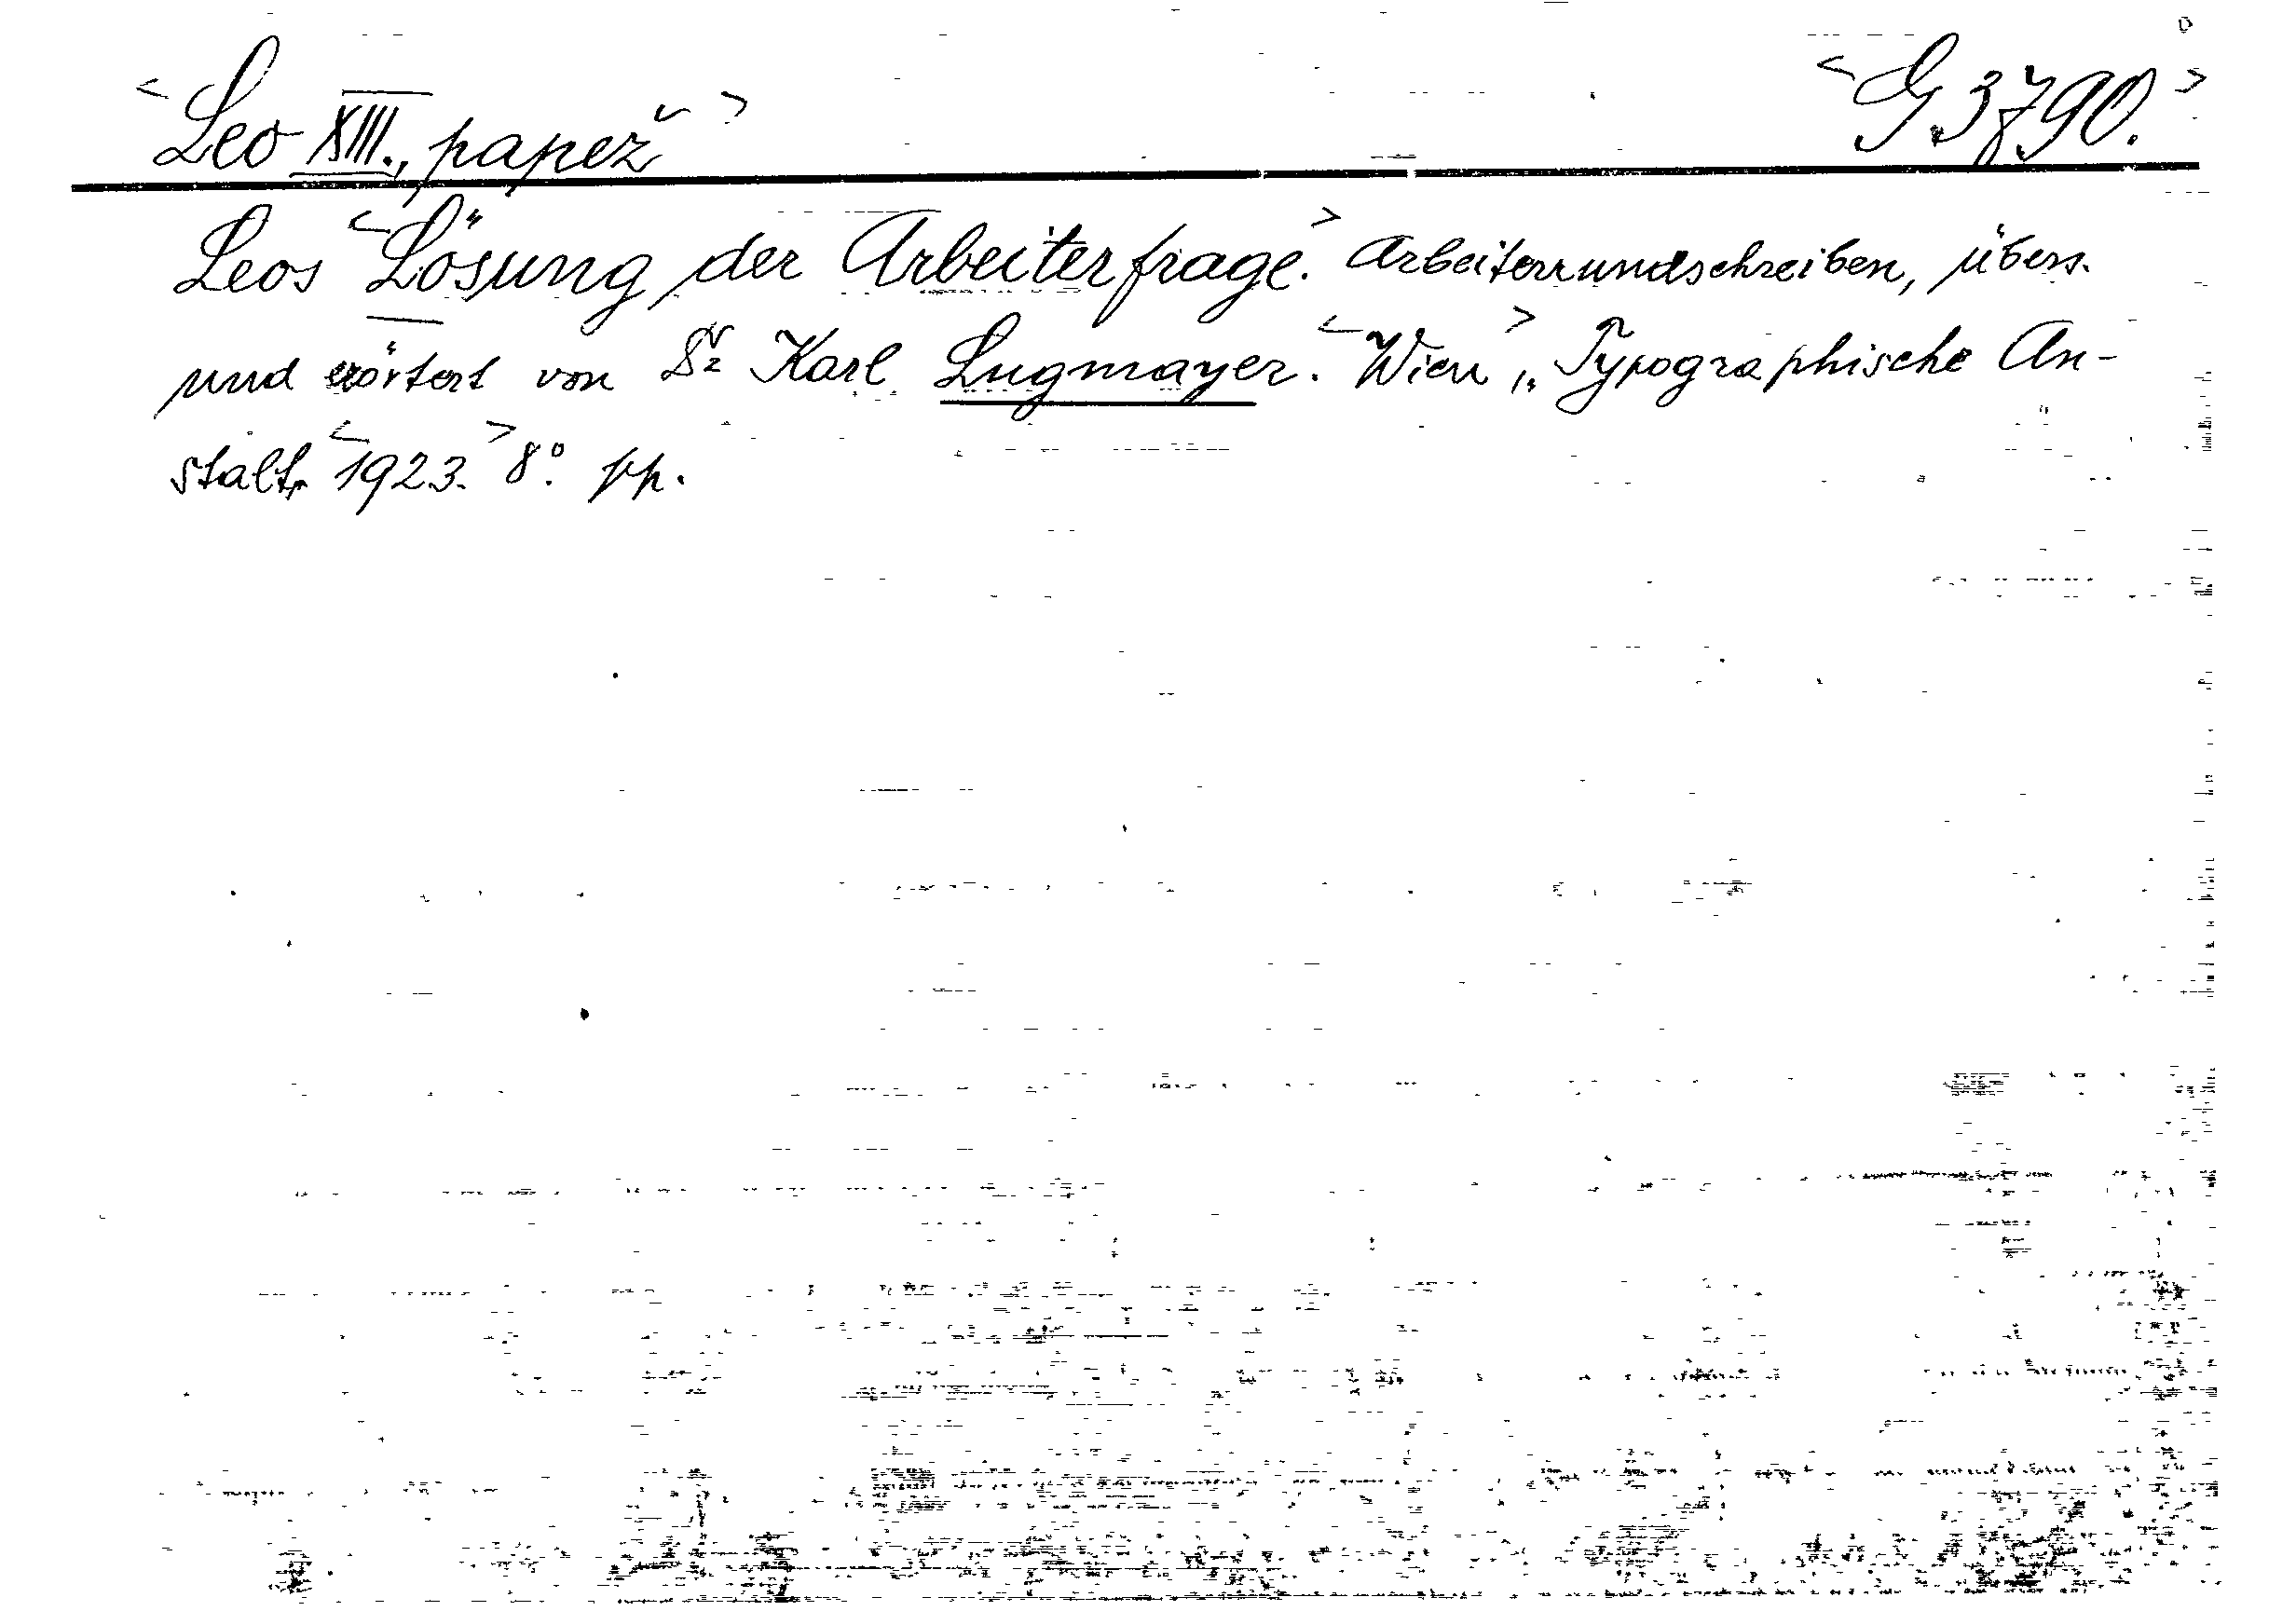 <Leo XIII., papež> <G 3790.>
Leos <Lösung der Arbeiterfrage.> Arbeiterrundschreiben, übers.
und erörtert von Dr Karl Lugmayer. <Wien>, „Typographische An-
stalt" <1923.> 8°. pp.